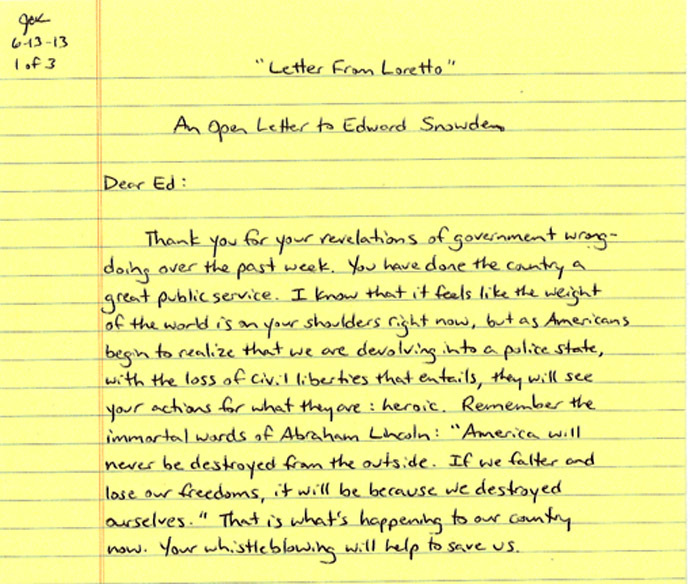 JCK
6-13-13
1 of 3
"Letter From Loretto"
An Open Letter to Edward Snowden
Dear Ed:
Thank you for your revelations of government wrong-
doing over the past week. You have done the country a
great public service. I know that it feels like the weight
of the world is on your shoulders right now, but as Americans
begin to realize that we are devolving into a police state,
with the loss of civil liberties that entails, they will see
your actions for what they are: heroic. Remember the
immortal words of Abraham Lincoln: "America will
never be destroyed from the outside. If we falter and
lose our freedoms, it will be because we destroyed
ourselves." That is what's happening to our country
now. Your whistleblowing will help to save us.